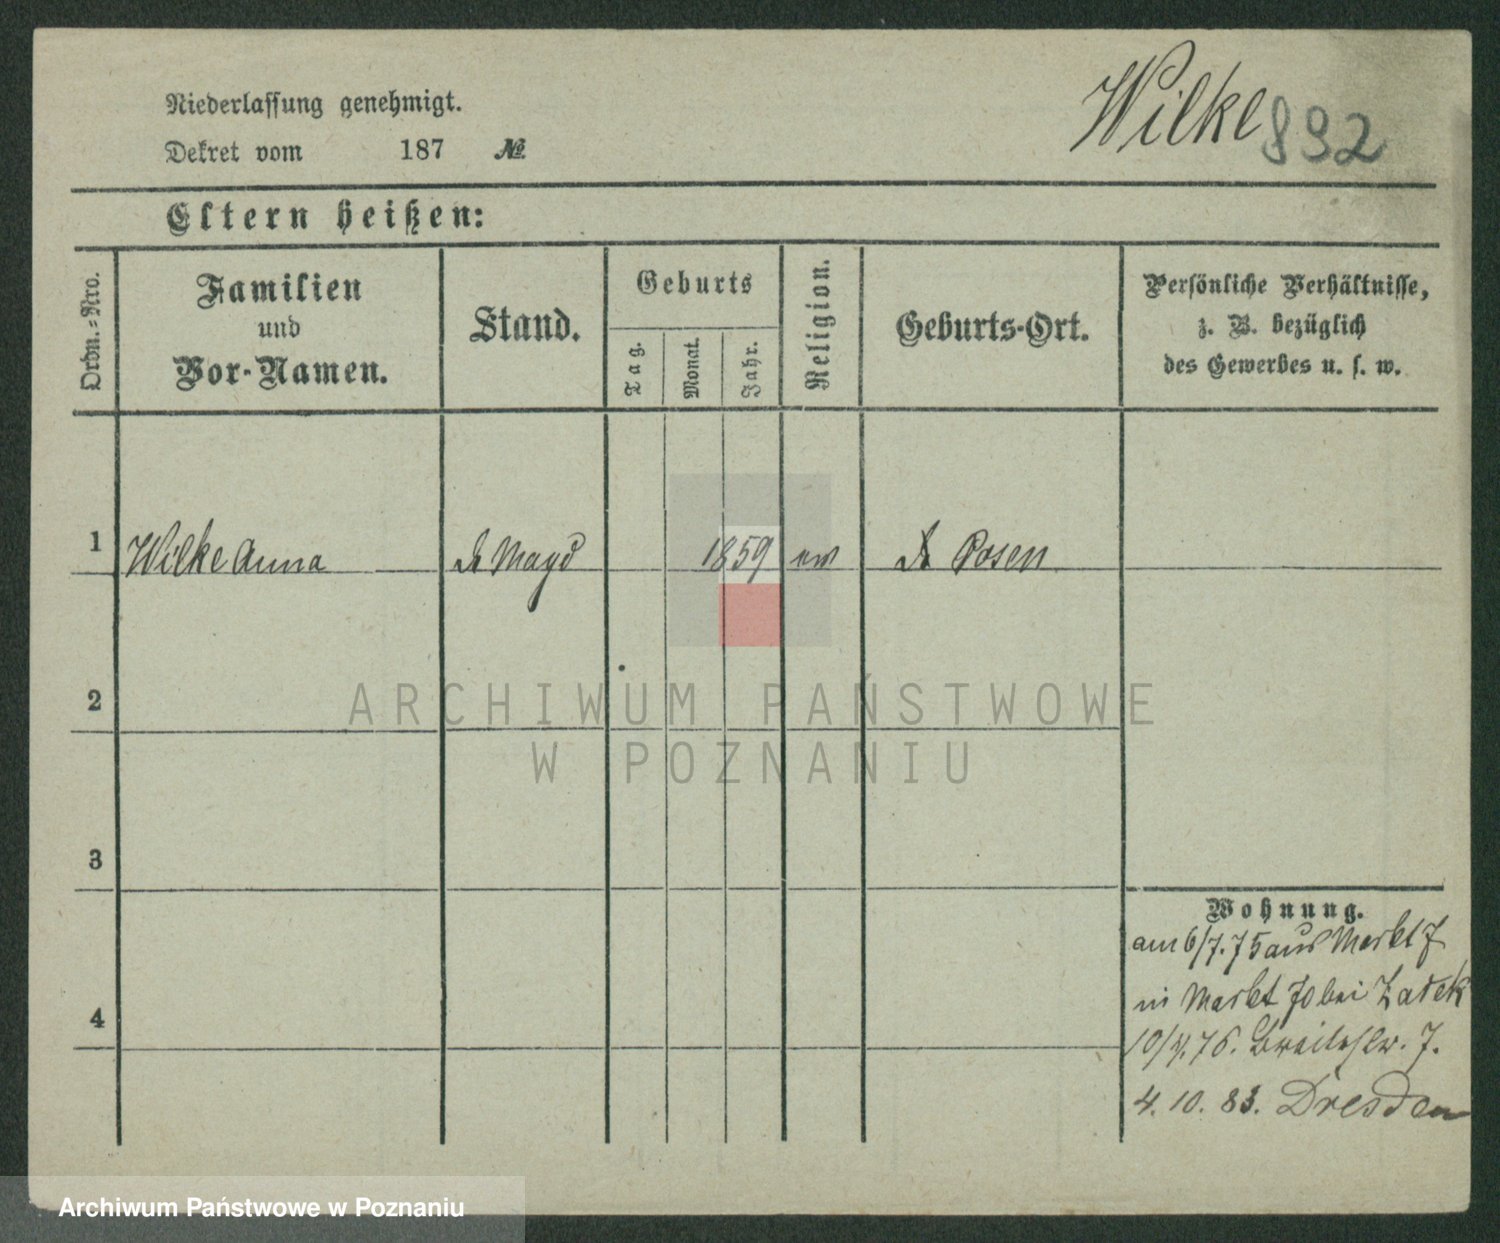 Wilke 892
Niederlassung genehmigt.
Dekret vom 187 №
Eltern heißen:
Ordn.-Nro.
Familien
und
Vor-Namen.
Stand.
Geburts
Tag.
Monat.
Jahr.
Religion.
Geburts-Ort.
Persönliche Verhältnisse,
z. B. bezüglich
des Gewerbes u. s. w.
1 Wilke Anna Magd 1859 ev Posen
2
3
4
Wohnung.
am 6/7. 75 aus Markt 7
in Markt 70 bei Zadek
10/4. 76. Breitestr. 7.
4. 10. 83. Dresden
ARCHIWUM PAŃSTWOWE
W POZNANIU
Archiwum Państwowe w Poznaniu